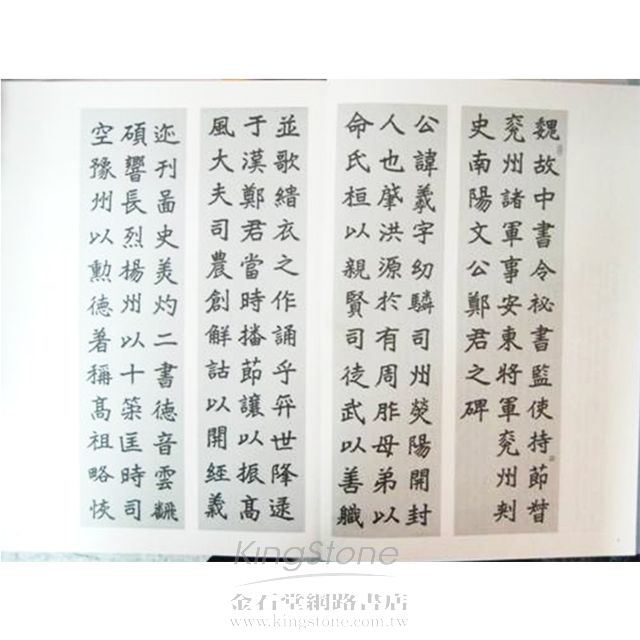 魏故中書令祕書監使持節督
兗州諸軍事安東將軍兗州刾
史南陽文公鄭君之碑
公諱羲字幼驎司州熒陽開封
人也肇洪源於有周胙母弟以
命氏桓以親賢司徒武以善職
並歌緇衣之作誦乎弈世降逮
于漢鄭君當時播節讓以振髙
風大夫司農創解詁以開經義
迹刊啚史美灼二書德音雲翻
碩響長烈楊州以十策匡時司
空豫州以勲德著稱髙祖略恢
KingStone
金石堂網路書店
www.kingstone.com.tw